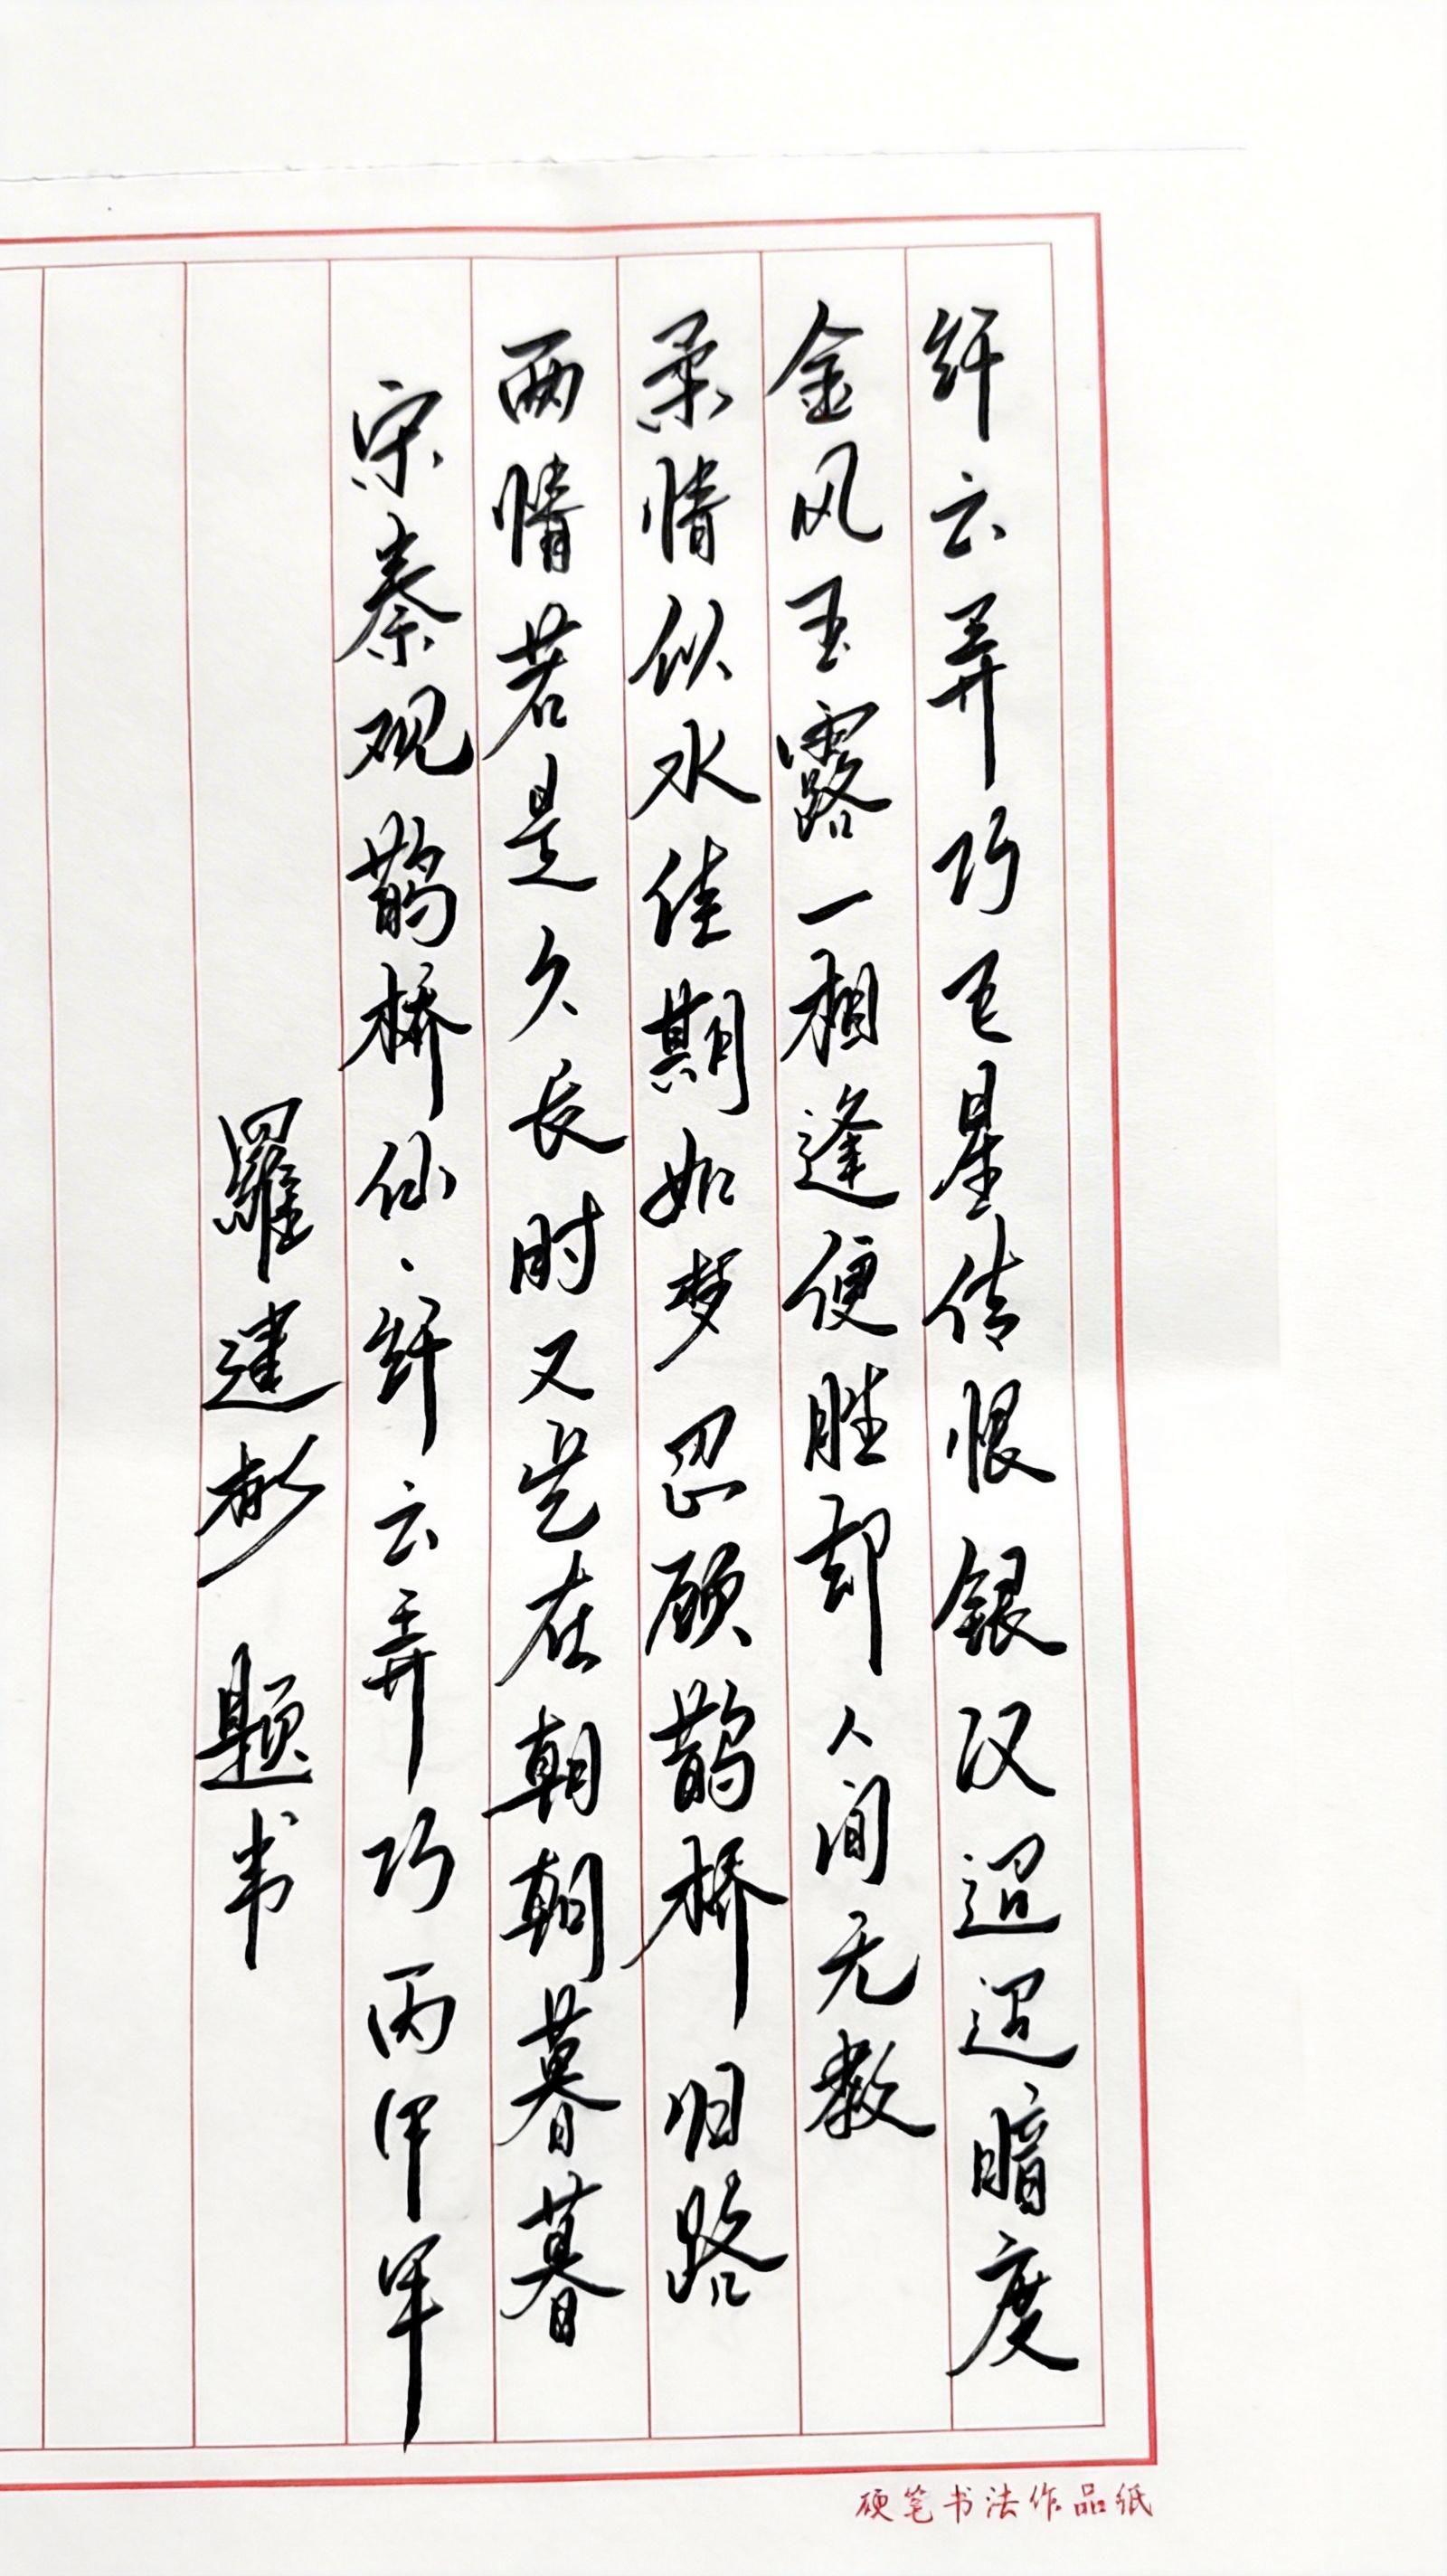 纤云弄巧飞星传恨银汉迢迢暗度
金风玉露一相逢便胜却人间无数
柔情似水佳期如梦忍顾鹊桥归路
两情若是久长时又岂在朝朝暮暮
宋秦观鹊桥仙·纤云弄巧丙甲年
羅建彬 题书
硬笔书法作品纸